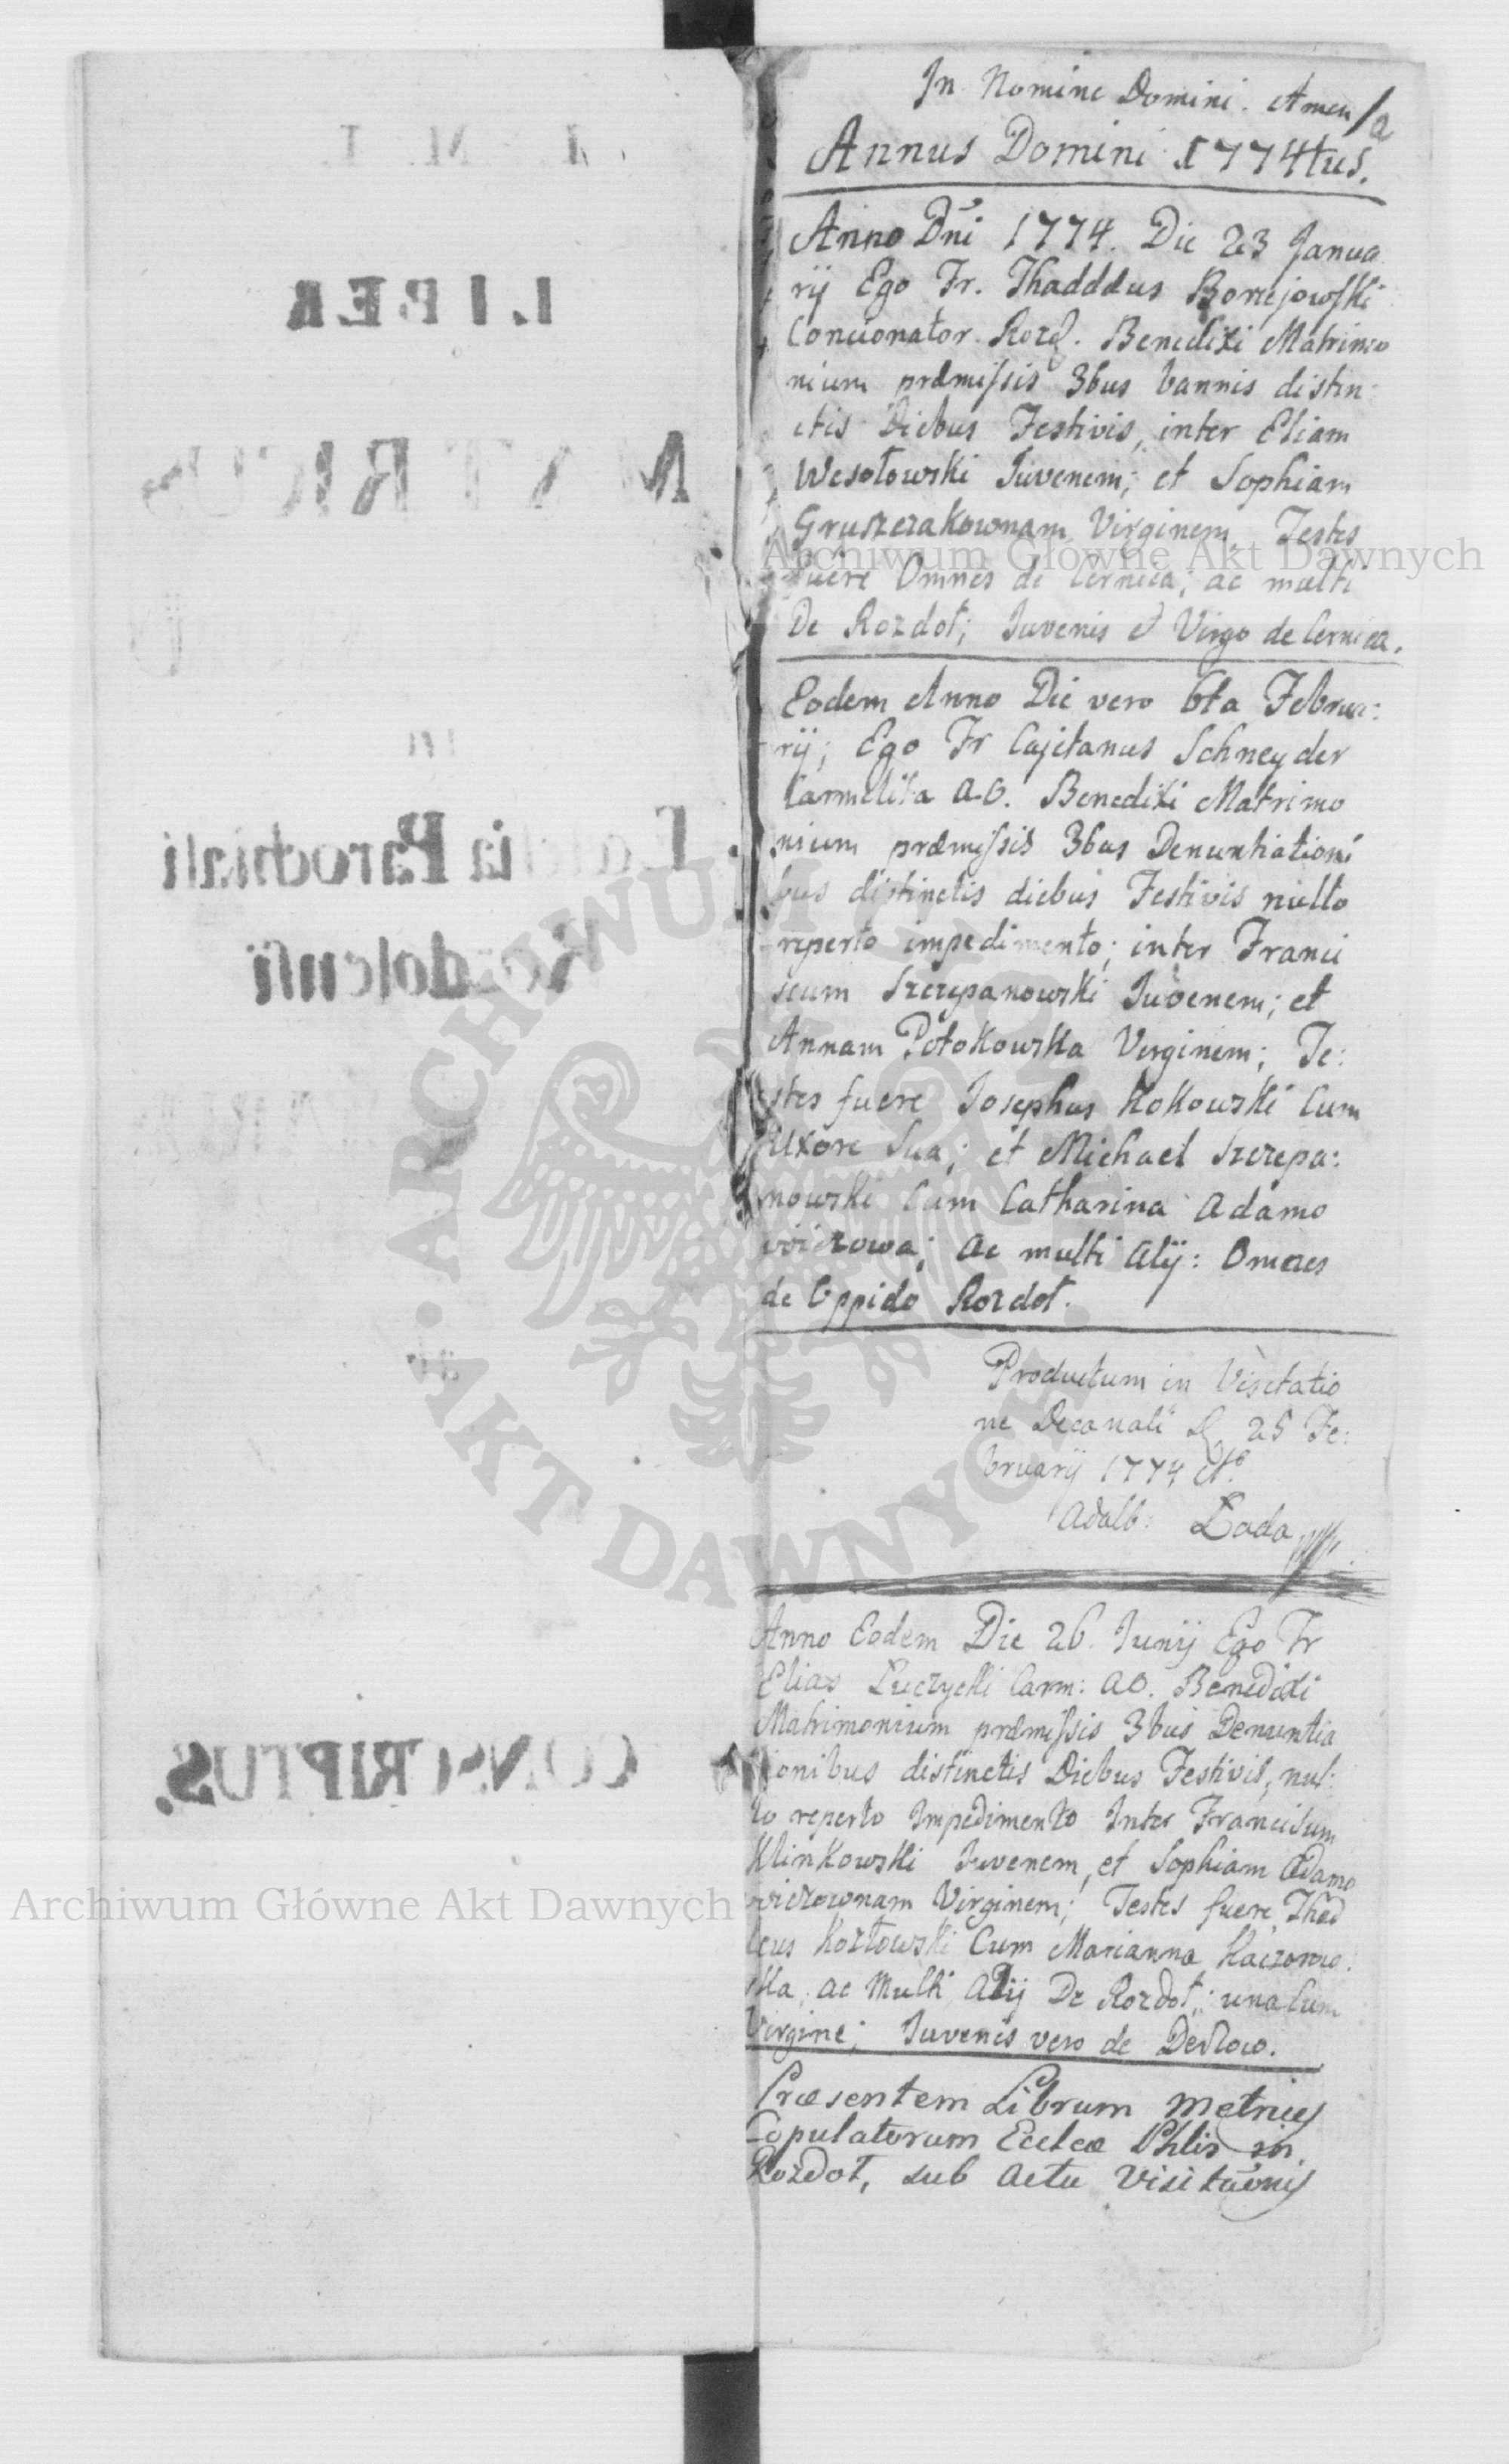 LIBER
Parochiali
CONSCRIPTUS.
In Nomine Domini. Amen
Annus Domini 1774tus.
Anno Dni 1774. Die 23 Janua
rij Ego Fr. Thadddus Borzejowski
Concionator Rozd. Benedixi Matrimo
nium præmissis 3bus bannis distin:
ctis Diebus Festivis, inter Eliam
Wesołowski Juvenem; et Sophiam
Gruszczakownam Virginem, Testes
fuere Omnes de Cernica; ac multi
De Rozdoł; Juvenis et Virgo de Cernica.
Eodem Anno Die vero 6ta Februa:
rij; Ego Fr Cajetanus Schneyder
Carmelita A.O. Benedixi Matrimo
nium præmissis 3bus Denuntiationi
bus distinctis diebus Festivis nullo
reperto impedimento; inter Franci
scum Szczepanowski Juvenem; et
Annam Potokowska Virginem; Te:
stes fuere Josephus Kokowski Cum
Uxore Sua; et Michael Szczepa:
nowski Cum Catharina Adamo
wiczowa; ac multi alij: Omnes
de Oppido Rozdoł.
Productum in Visitatio
ne Decanali D. 25 Fe:
bruarij 1774 Ao
Adalb: Lada
Anno Eodem Die 26. Junij Ego Fr
Elias Luczycki Carm: AO. Benedixi
Matrimonium præmissis 3bus Denuntia
tionibus distinctis Diebus Festivis, nul:
lo reperto Impedimento Inter Franciscum
Klinkowski Juvenem, et Sophiam Adamo
wiczownam Virginem; Testes fuere Thad
deus Kozłowski Cum Marianna Kaczorow:
ska, ac Multi Alij De Rozdoł; una Cum
Virgine; Juvenis vero de
Præsentem Librum Metrices
Copulatorum Ecclcæ Phlis in
Rozdoł, sub actu Visituonis
Archiwum Główne Akt Dawnych
ARCHIWUM GŁÓWNE
AKT DAWNYCH
Archiwum Główne Akt Dawnych